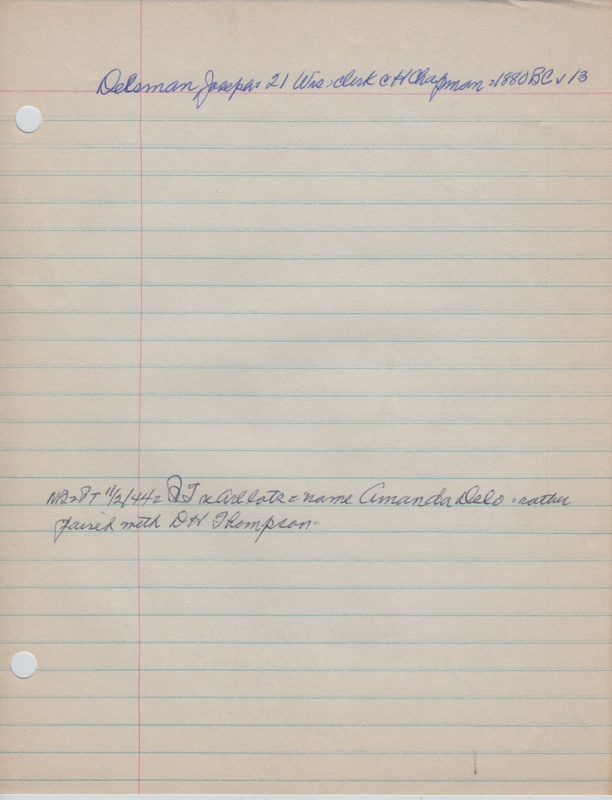 Delsman, Joseph = 21 Wis = clerk C H Chapman = 1880 BC v 13
NB = PT 11/2/44 = = name Amanda Delo = rather
paired with D H Thompson